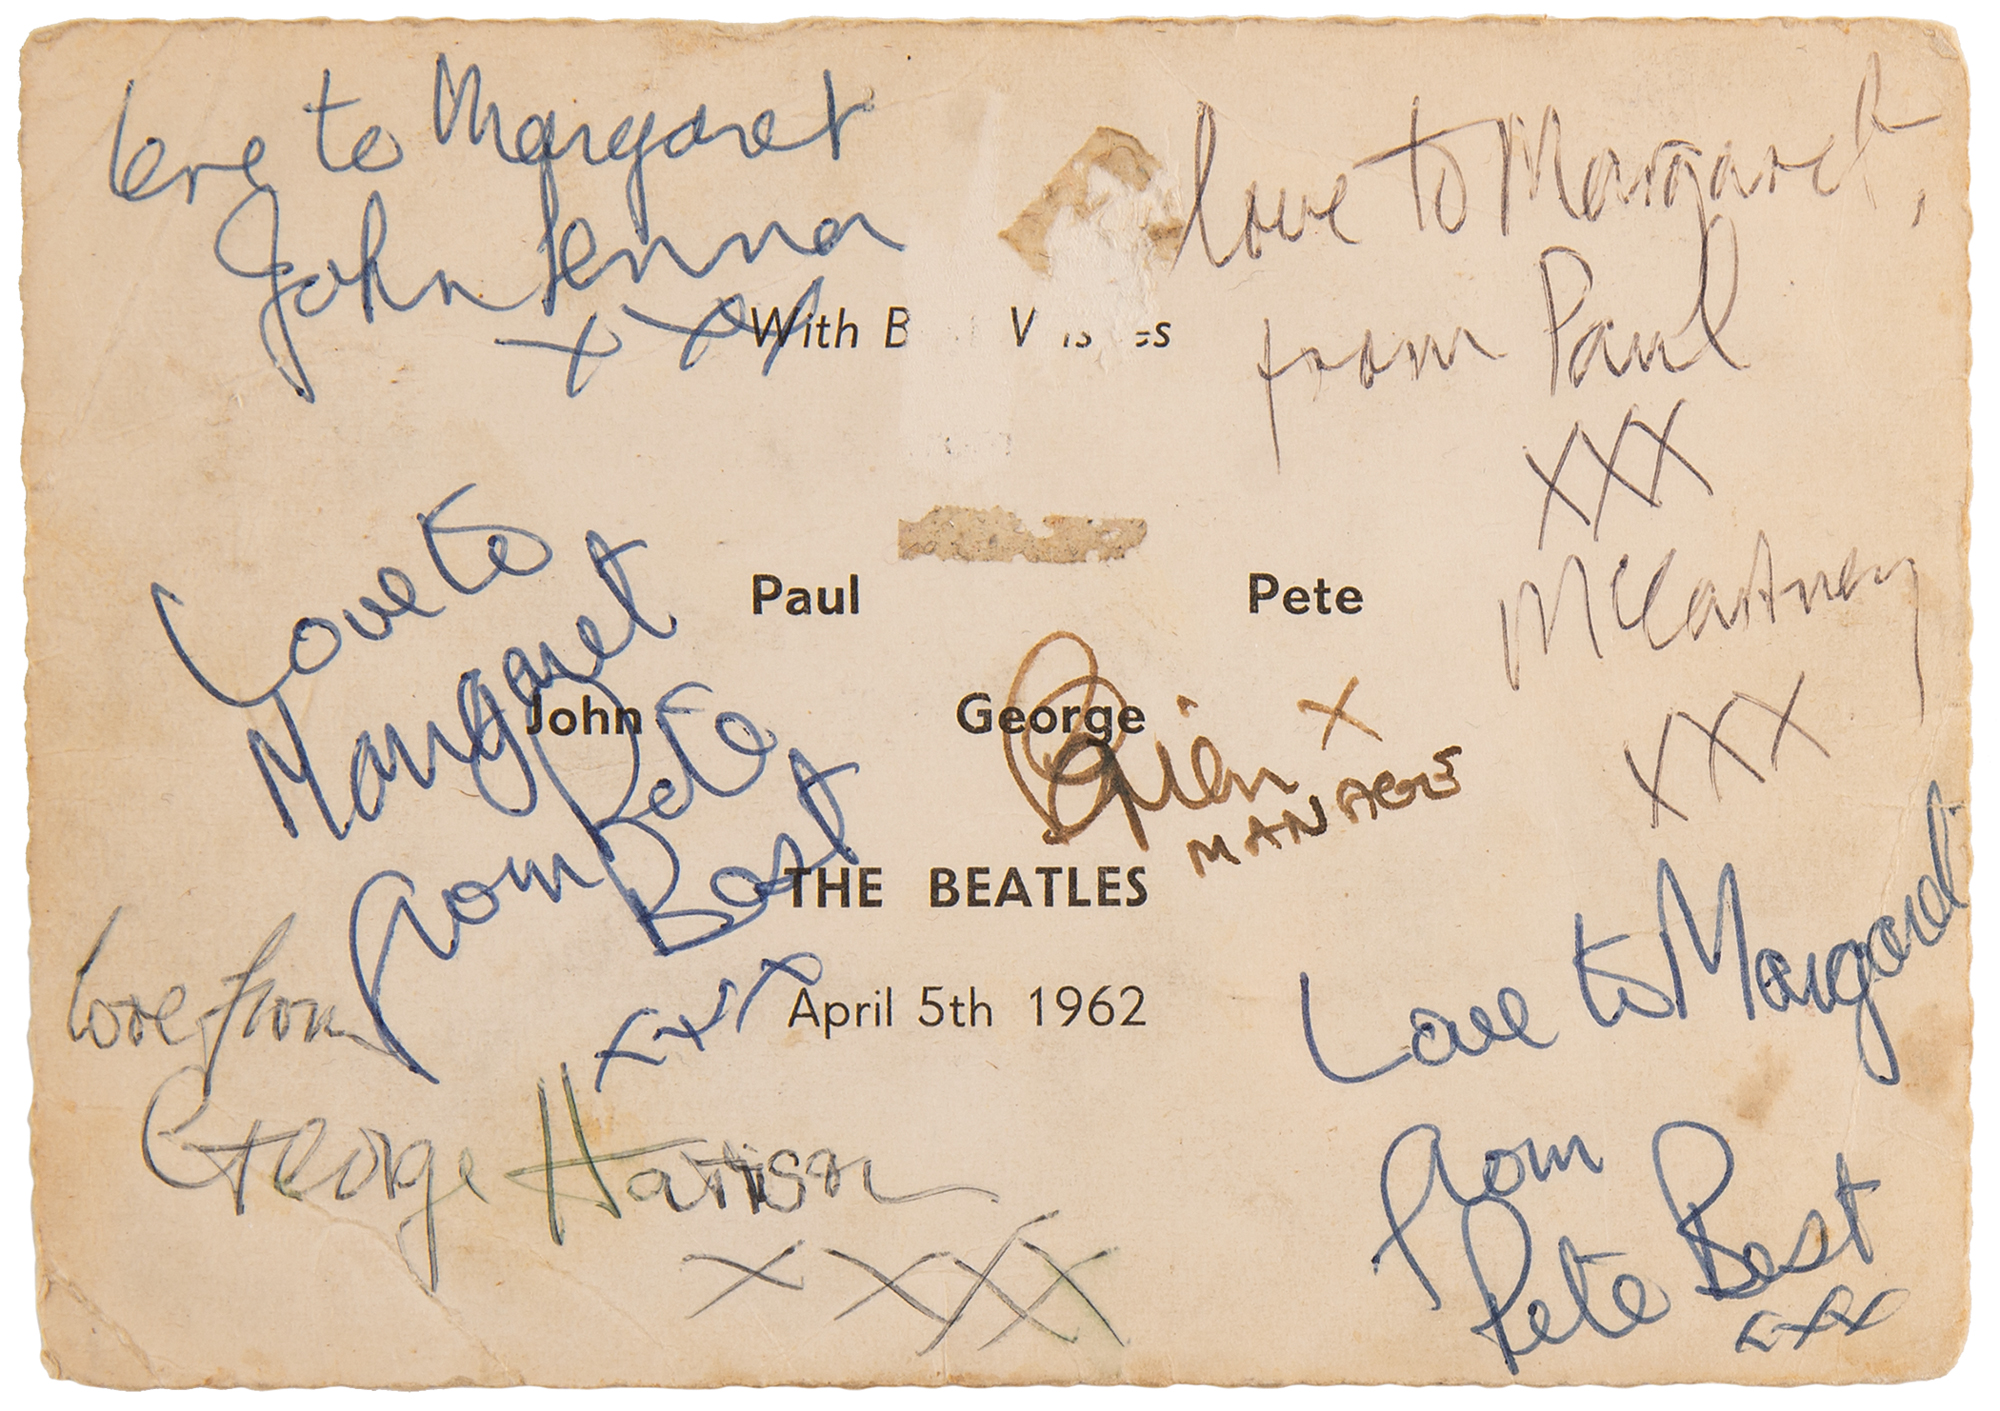 love to Margaret
John Lennon
xxx
love to Margaret,
from Paul
xxx
McCartney
xxx
With B V is es
Love to
Margaret
from Pete
Best
xxxx
Paul Pete
John George
Brian x
MANAGER
THE BEATLES
April 5th 1962
love from
George Harrison
xxxx
Love to Margaret
from
Pete Best
xxx